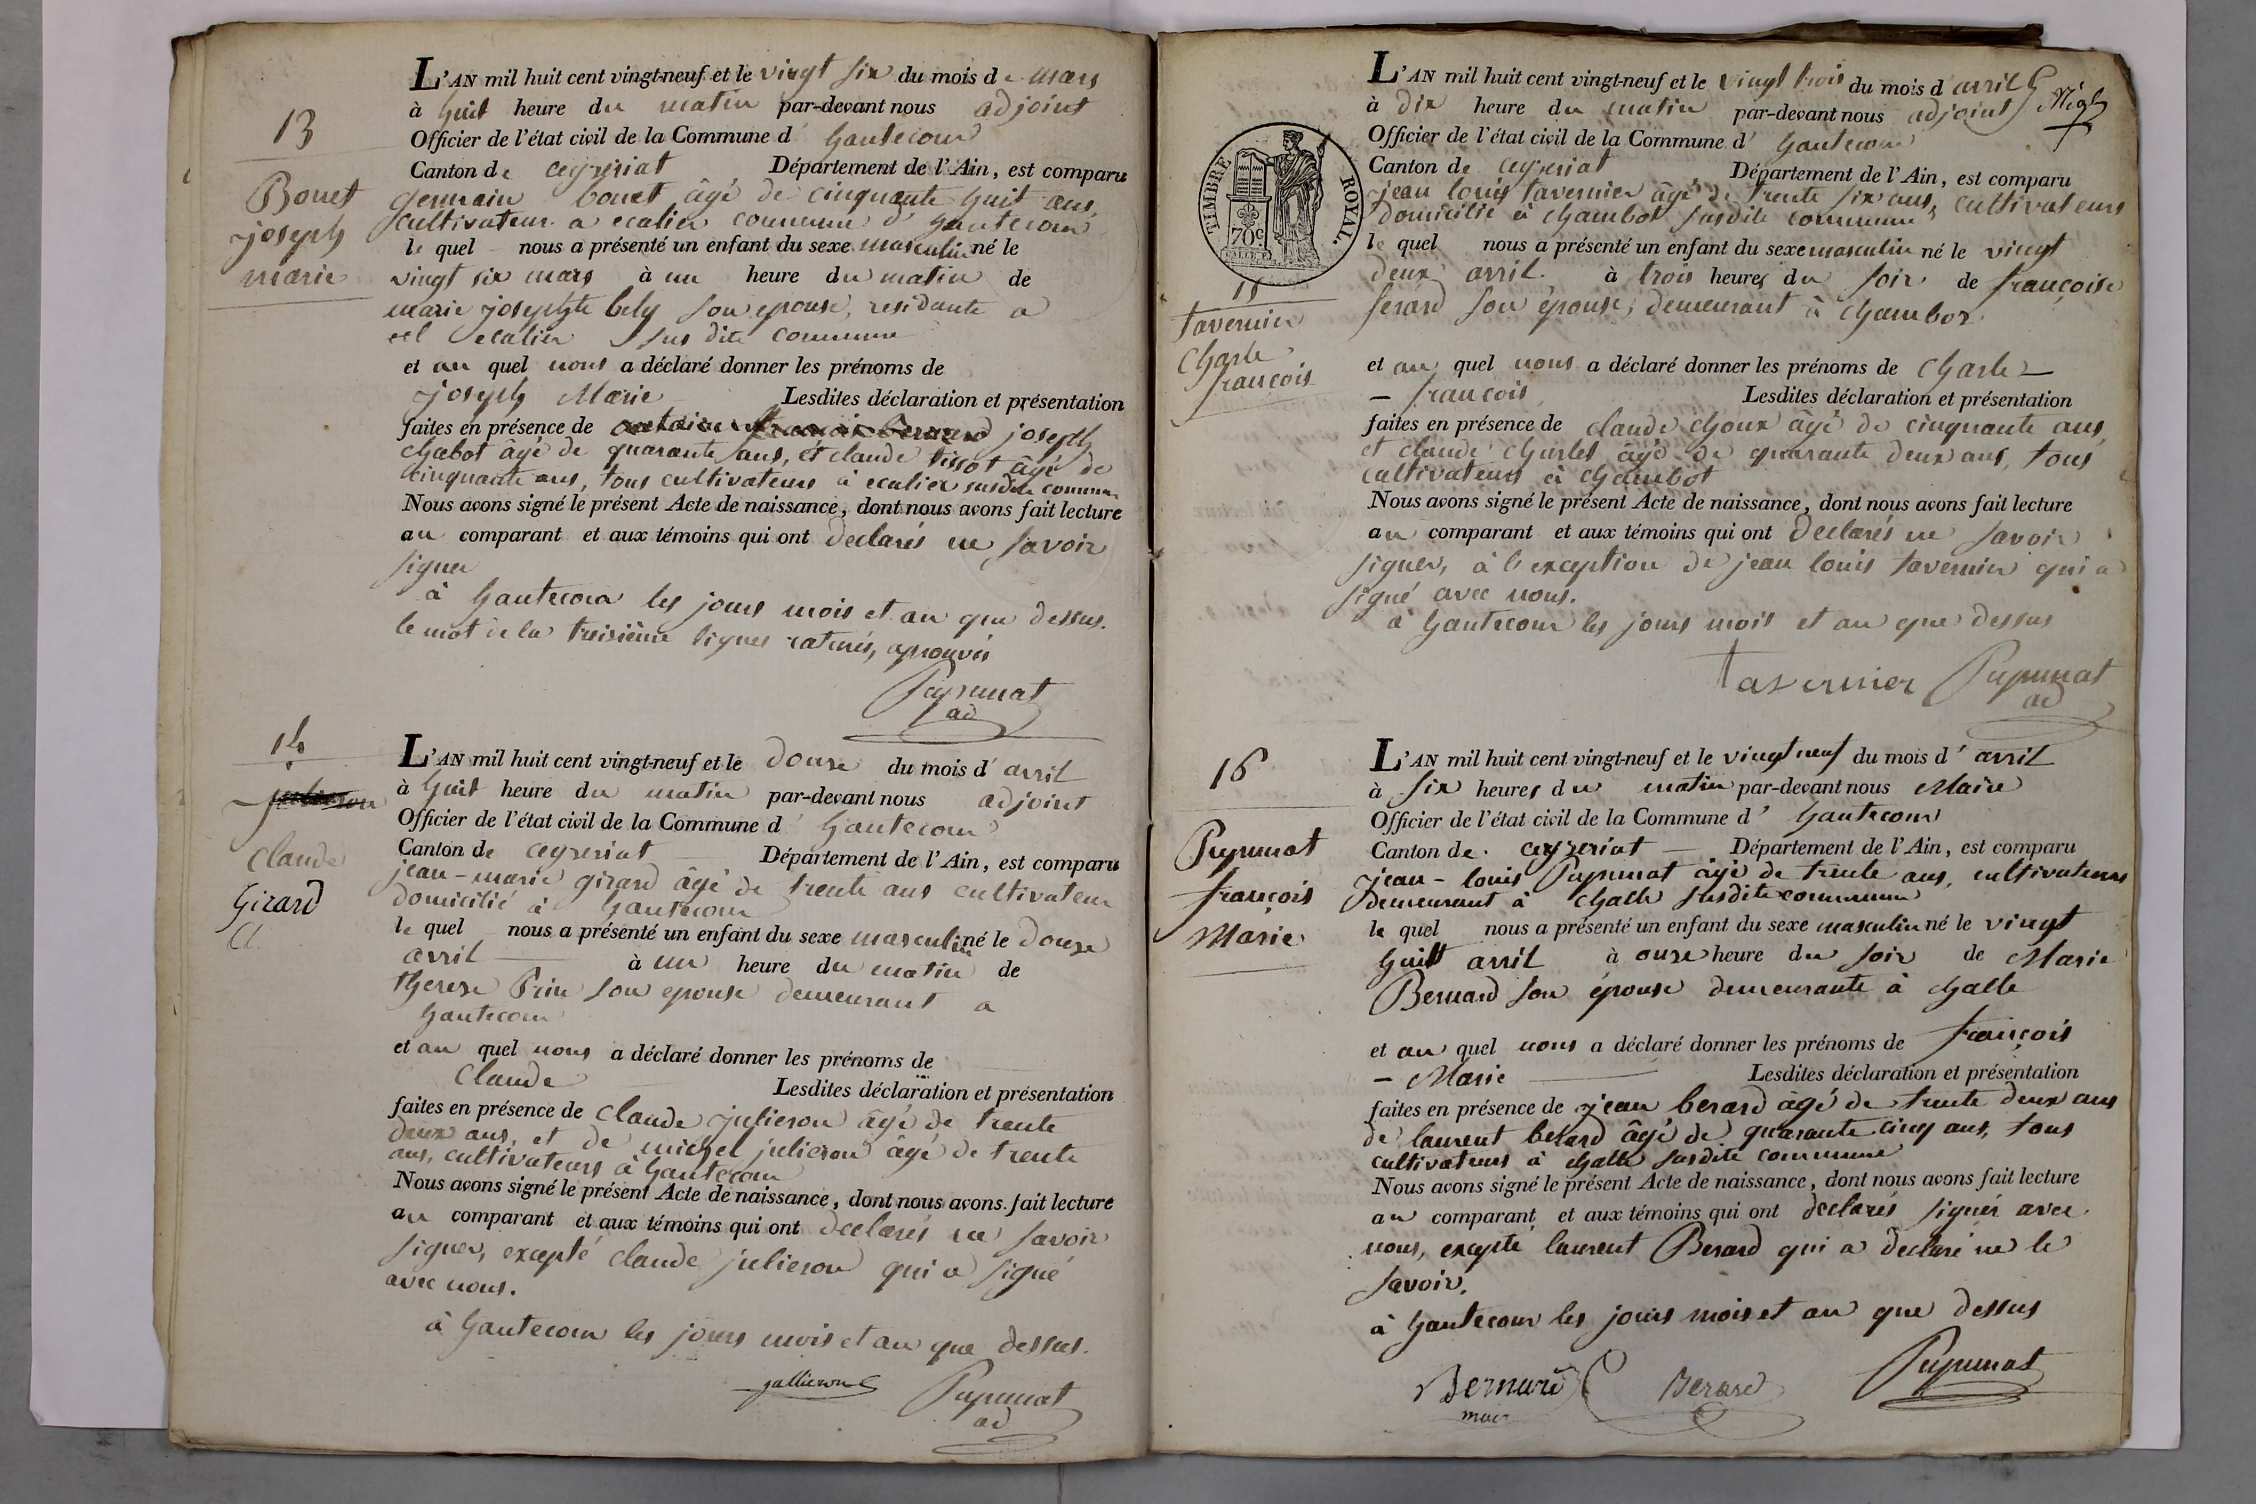 13
Bouet
joseph
marie
L'AN mil huit cent vingt-neuf et le vingt six du mois de mars
à huit heure du matin par-devant nous adjoint
Officier de l'état civil de la Commune d' hautecour
Canton de ceyzeriat Département de l'Ain, est comparu
germain bouet âgé de cinquante huit ans,
cultivateur a commune d' hautecour
le quel nous a présenté un enfant du sexe masculin né le
vingt six mars à un heure du matin de
marie josephte bely son epouse, residante a
susdite commune
et au quel nous a déclaré donner les prénoms de
joseph Marie Lesdites déclaration et présentation
faites en présence de joseph
chabot âgé de quarante ans, et claude tissot âgé de
cinquante ans, tous cultivateurs à susdite commune
Nous avons signé le présent Acte de naissance, dont nous avons fait lecture
au comparant et aux témoins qui ont declarés ne savoir
signer
à hautecour les jours mois et an que dessus.
le mot de la troisième lignes raturés, aprouvés
Pupunat
ad
14
Claude
Girard
Cl.
L'AN mil huit cent vingt-neuf et le douze du mois d' avril
à huit heure du matin par-devant nous adjoint
Officier de l'état civil de la Commune d' hautecour
Canton de ceyzeriat Département de l'Ain, est comparu
jean-marie girard âgé de trente ans cultivateur
domicilié à hautecour
le quel nous a présenté un enfant du sexe masculin né le douze
avril à un heure du matin de
therese Prin son epouse demeurant a
hautecour
et au quel nous a déclaré donner les prénoms de
Claude Lesdites déclaration et présentation
faites en présence de Claude julieron âgé de trente
deux ans, et de michel julieron âgé de trente
ans, cultivateurs à hautecour
Nous avons signé le présent Acte de naissance, dont nous avons fait lecture
au comparant et aux témoins qui ont declarés ne savoir
signer, excepté claude julieron qui a signé
avec nous.
à hautecour les jours mois et an que dessus.
jullieron Pupunat
ad
TIMBRE ROYAL.
70c
15
tavernier
Charle
françois
L'AN mil huit cent vingt-neuf et le vingt trois du mois d' avril
à dix heure du matin par-devant nous adjoint
Officier de l'état civil de la Commune d' hautecour
Canton de ceyzeriat Département de l'Ain, est comparu
jean louis tavernier âgé de trente six ans, cultivateurs
domicilié à chambot susdite commune
le quel nous a présenté un enfant du sexe masculin né le vingt
deux avril. à trois heures du soir de françoise
ferard son épouse, demeurant à chambos
et au quel nous a déclaré donner les prénoms de Charle –
– françois Lesdites déclaration et présentation
faites en présence de claude choux âgé de cinquante ans,
et claude charles âgé de quarante deux ans, tous
cultivateurs à chambot
Nous avons signé le présent Acte de naissance, dont nous avons fait lecture
au comparant et aux témoins qui ont declarés ne savoir
signer, à l'exception de jean louis tavernier qui a
signé avec nous.
à hautecour les jours mois et an que dessus
tavernier Pupunat
ad
16
Pupunat
françois
Marie
L'AN mil huit cent vingt-neuf et le vingt neuf du mois d' avril
à six heures du matin par-devant nous Maire
Officier de l'état civil de la Commune d' hautecour
Canton de ceyzeriat Département de l'Ain, est comparu
jean-louis Pupunat âgé de trente ans, cultivateurs
demeurant à challe susdite commune
le quel nous a présenté un enfant du sexe masculin né le vingt
huit avril à onze heure du soir de Marie
Bernard son épouse demeurante à challe
et au quel nous a déclaré donner les prénoms de françois
– Marie Lesdites déclaration et présentation
faites en présence de jean berard âgé de trente deux ans
de laurent berard âgé de quarante cinq ans, tous
cultivateurs à challe susdite commune
Nous avons signé le présent Acte de naissance, dont nous avons fait lecture
au comparant et aux témoins qui ont declarés signer avec
nous, excepté laurent Berard qui a declaré ne le
savoir.
à hautecour les jours mois et an que dessus
Bernard Berard Pupunat
maire